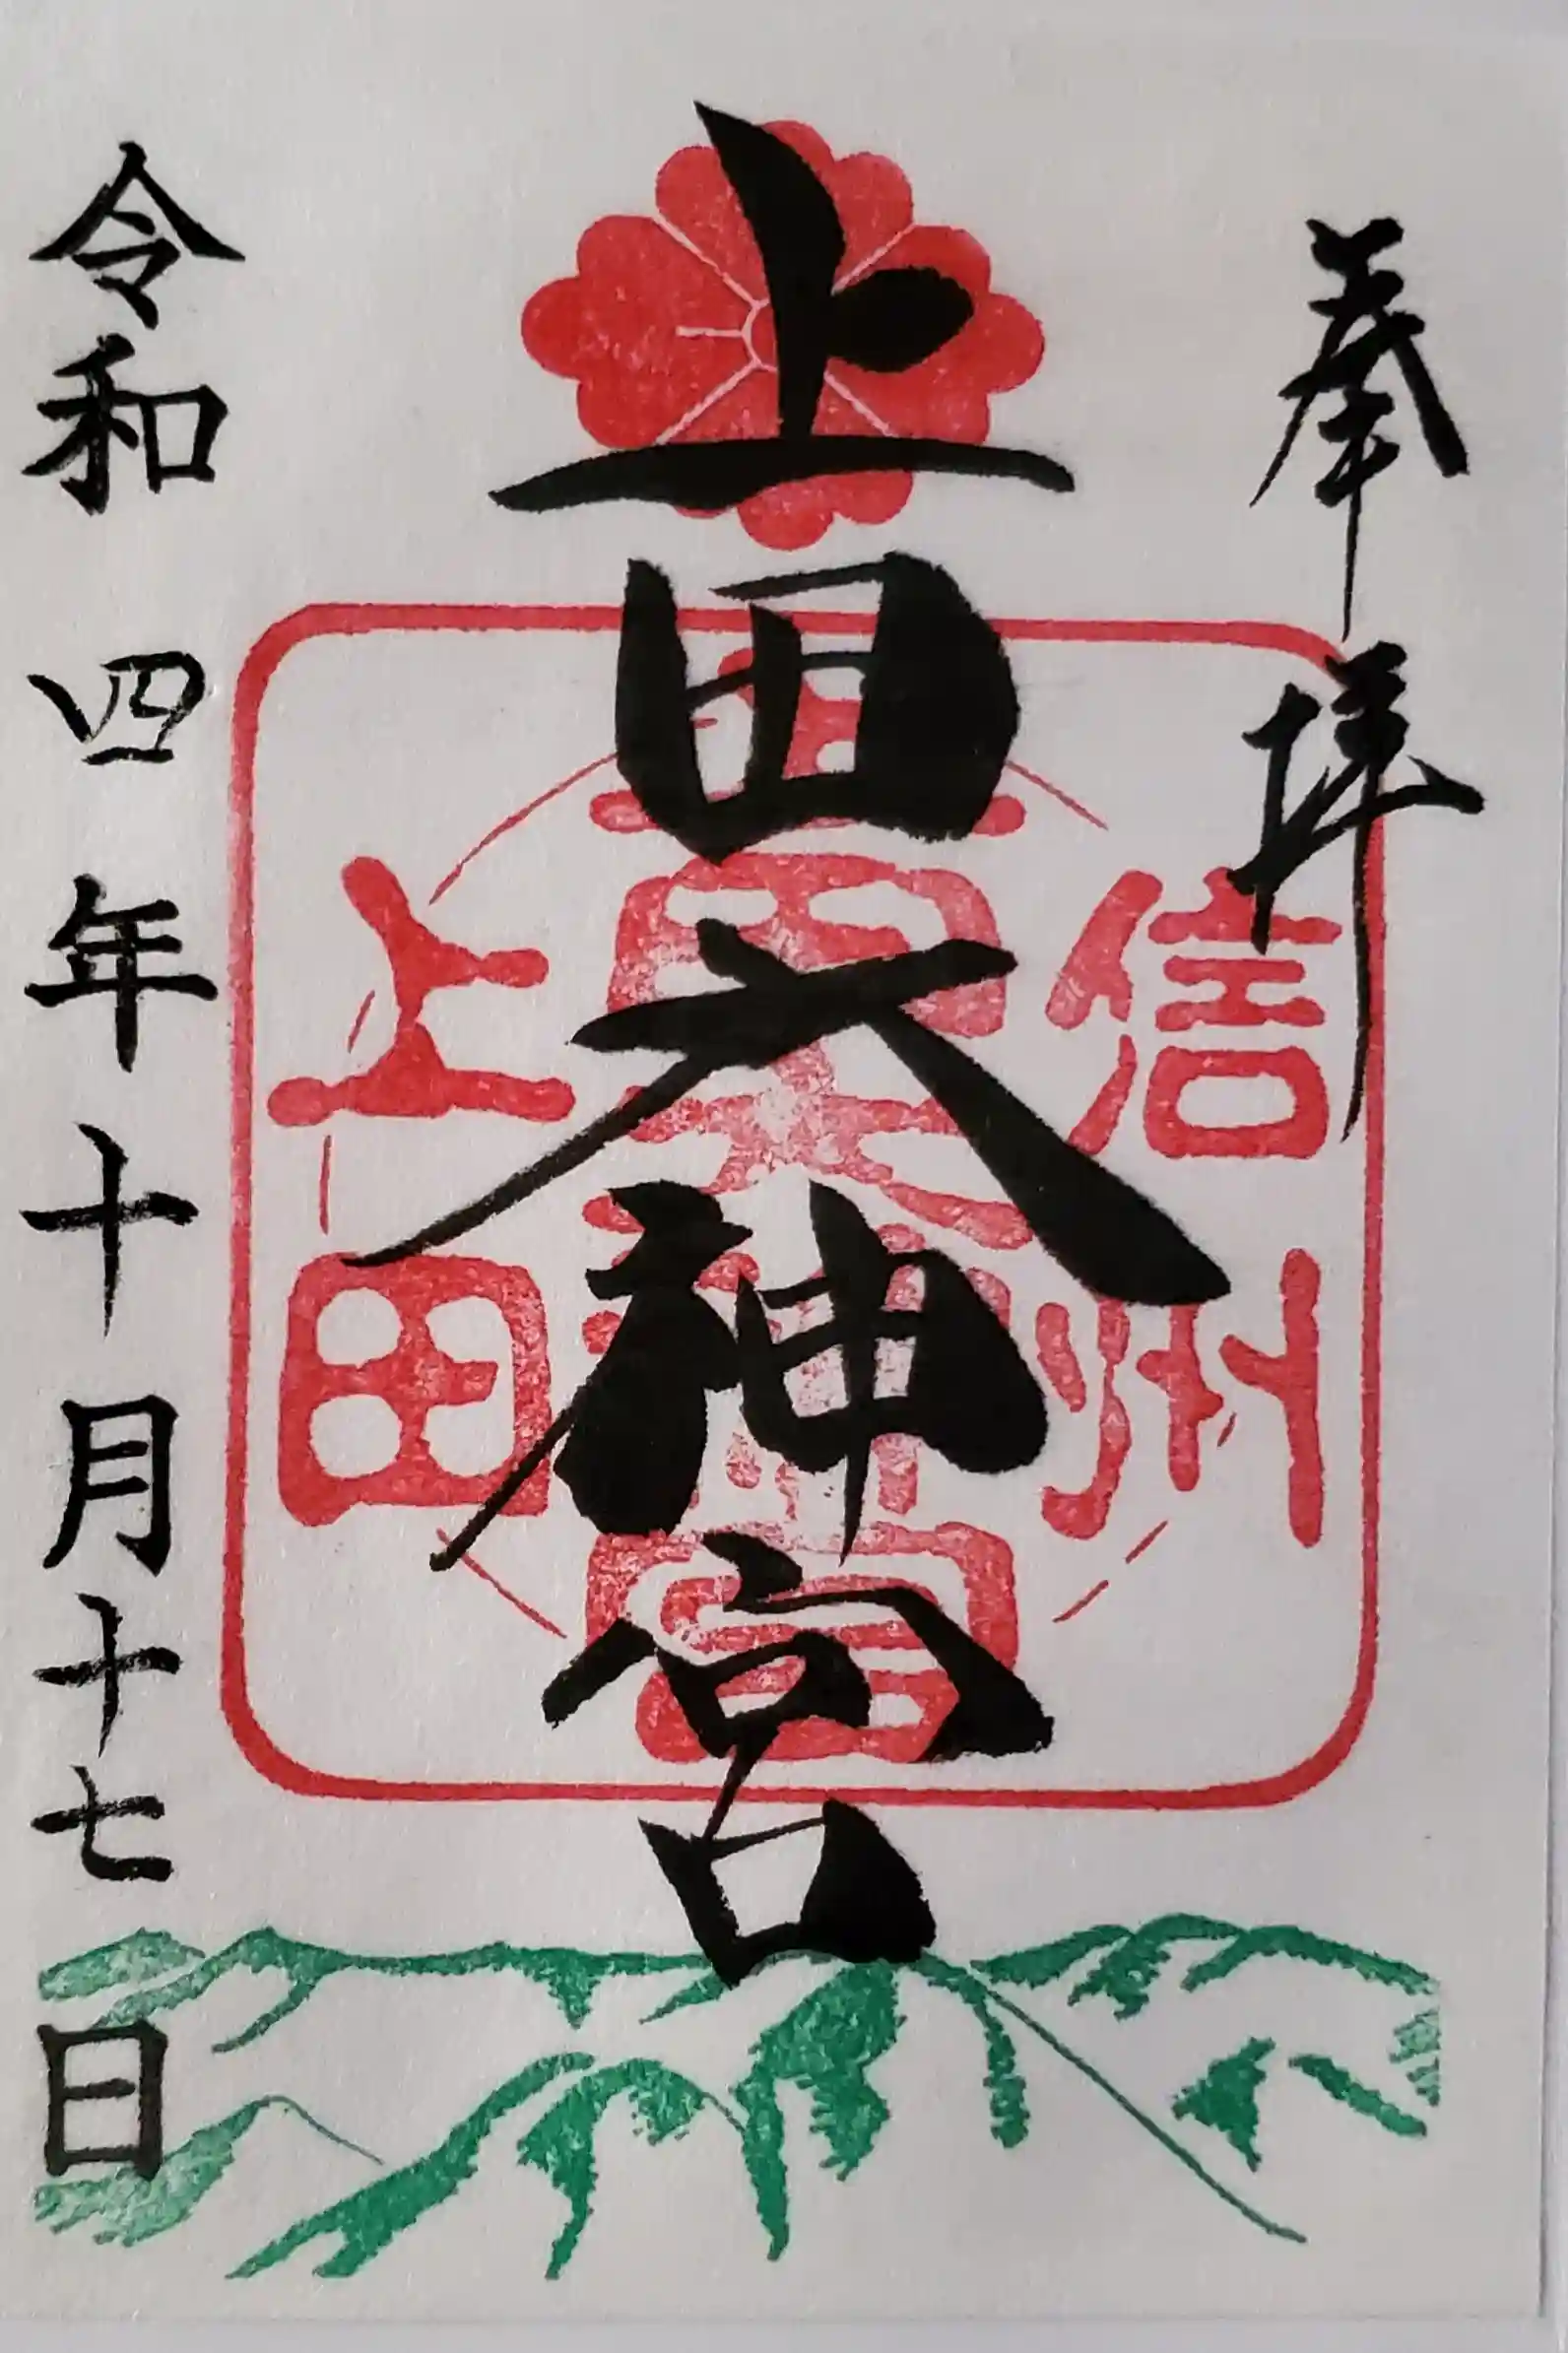 奉拝
信州
上田大神宮
上田大神宮
上田
令和四年十月十七日